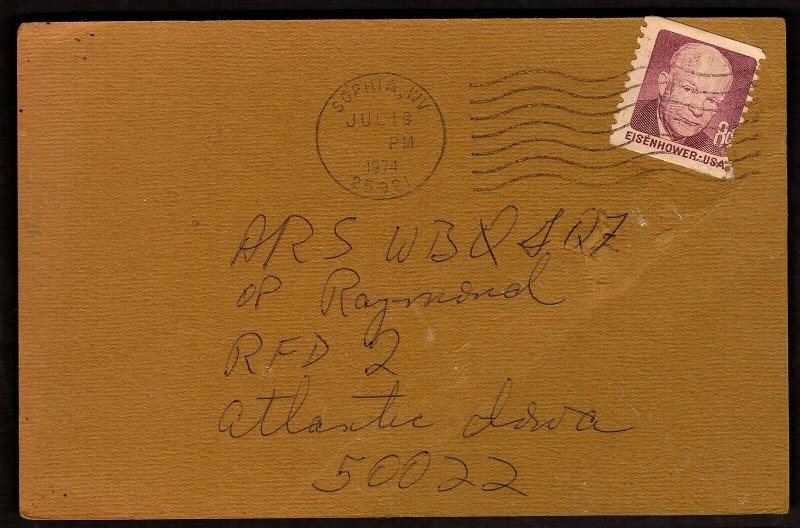 SOPHIA, WV
JUL 19
PM
1974
25921
8c
EISENHOWER·USA
ARS WBØ
OP Raymond
RFD 2
Atlantic Iowa
50022